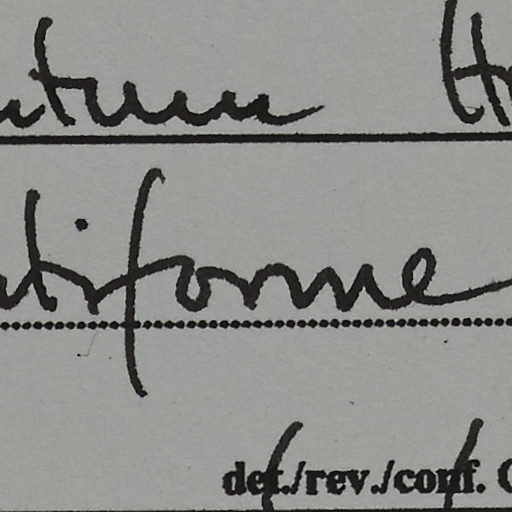 ntum H
atiforme
det./rev./conf. C